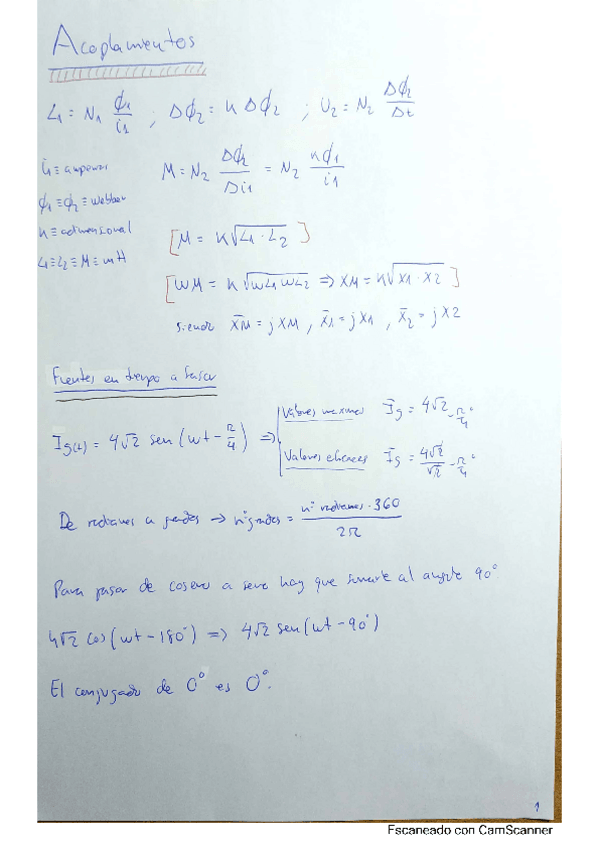 Acoplamientos
L1 = N1 ϕ1/i1 ; Δϕ2 = K Δϕ2 ; U2 = N2 Δϕ2/Δt
i1 ≡ amperios
M = N2 Δϕ2/Δi1 = N2 Kϕ1/i1
ϕ1 ≡ ϕ2 ≡ webber
K ≡ adimensional
[M = K√(L1 · L2)]
L1 ≡ L2 ≡ M ≡ mH
[WM = K√(WL1 WL2) ⇒ XM = K√(X1 · X2)]
siendo X̄M = jXM , X̄1 = jX1 , X̄2 = jX2
Fuentes en tiempo a fasor
Ig(t) = 4√2 sen(wt - π/4) ⇒
Valores maximos Īg = 4√2 -π/4°
Valores eficaces Īg = 4√2/√2 -π/4°
De radianes a grados → nºgrados = nº radianes · 360 / 2π
Para pasar de coseno a seno hay que sumarle al angulo 90°
4√2 cos(wt - 180°) ⇒ 4√2 sen(wt - 90°)
El conjugado de 0° es 0°.
1
Escaneado con CamScanner